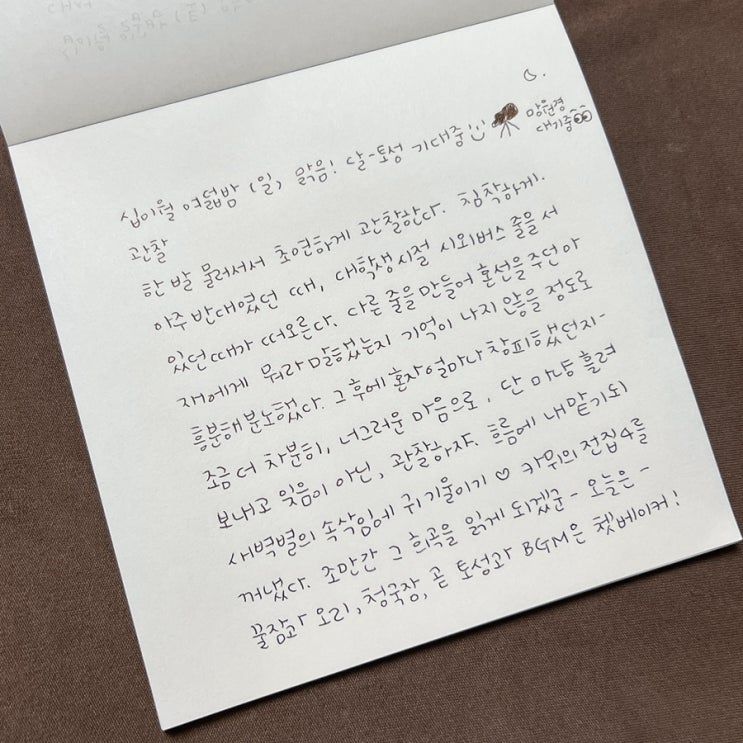 십이월 여덟밤 (일) 맑음! 달-토성 기대중
망원경
대기중
관찰
한 발 물러서서 초연하게 관찰한다. 침착하게.
아주 반대였던 때, 대학생시절 시외버스 줄을 서
있던 때가 떠오른다. 다른 줄을 만들어 혼선을 주던 아
재에게 뭐라 말했는지 기억이 나지 않을 정도로
흥분해 분노했다. 그 후에 혼자 얼마나 창피했던지-
조금 더 차분히, 너그러운 마음으로, 단 마냥 흘려
보내고 잊음이 아닌, 관찰하자. 흐름에 내맡기되
새벽별의 속삭임에 귀 기울이기 ♡ 카뮈의 전집4를
꺼냈다. 조만간 그 희곡을 읽게 되겠군- 오늘은-
꿀잠과 오리, 청국장, 곧 토성과 BGM은 쳇베이커!